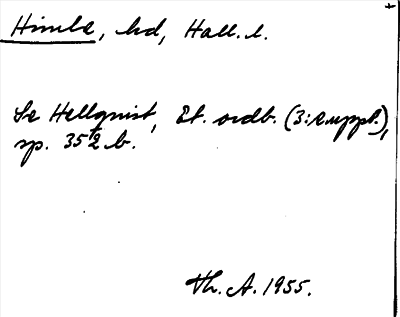 Himle, hd, Hall. l.
Se Hellquist, Et. ordb. (3:e uppl.),
sp. 352 b.
Th. A. 1955.